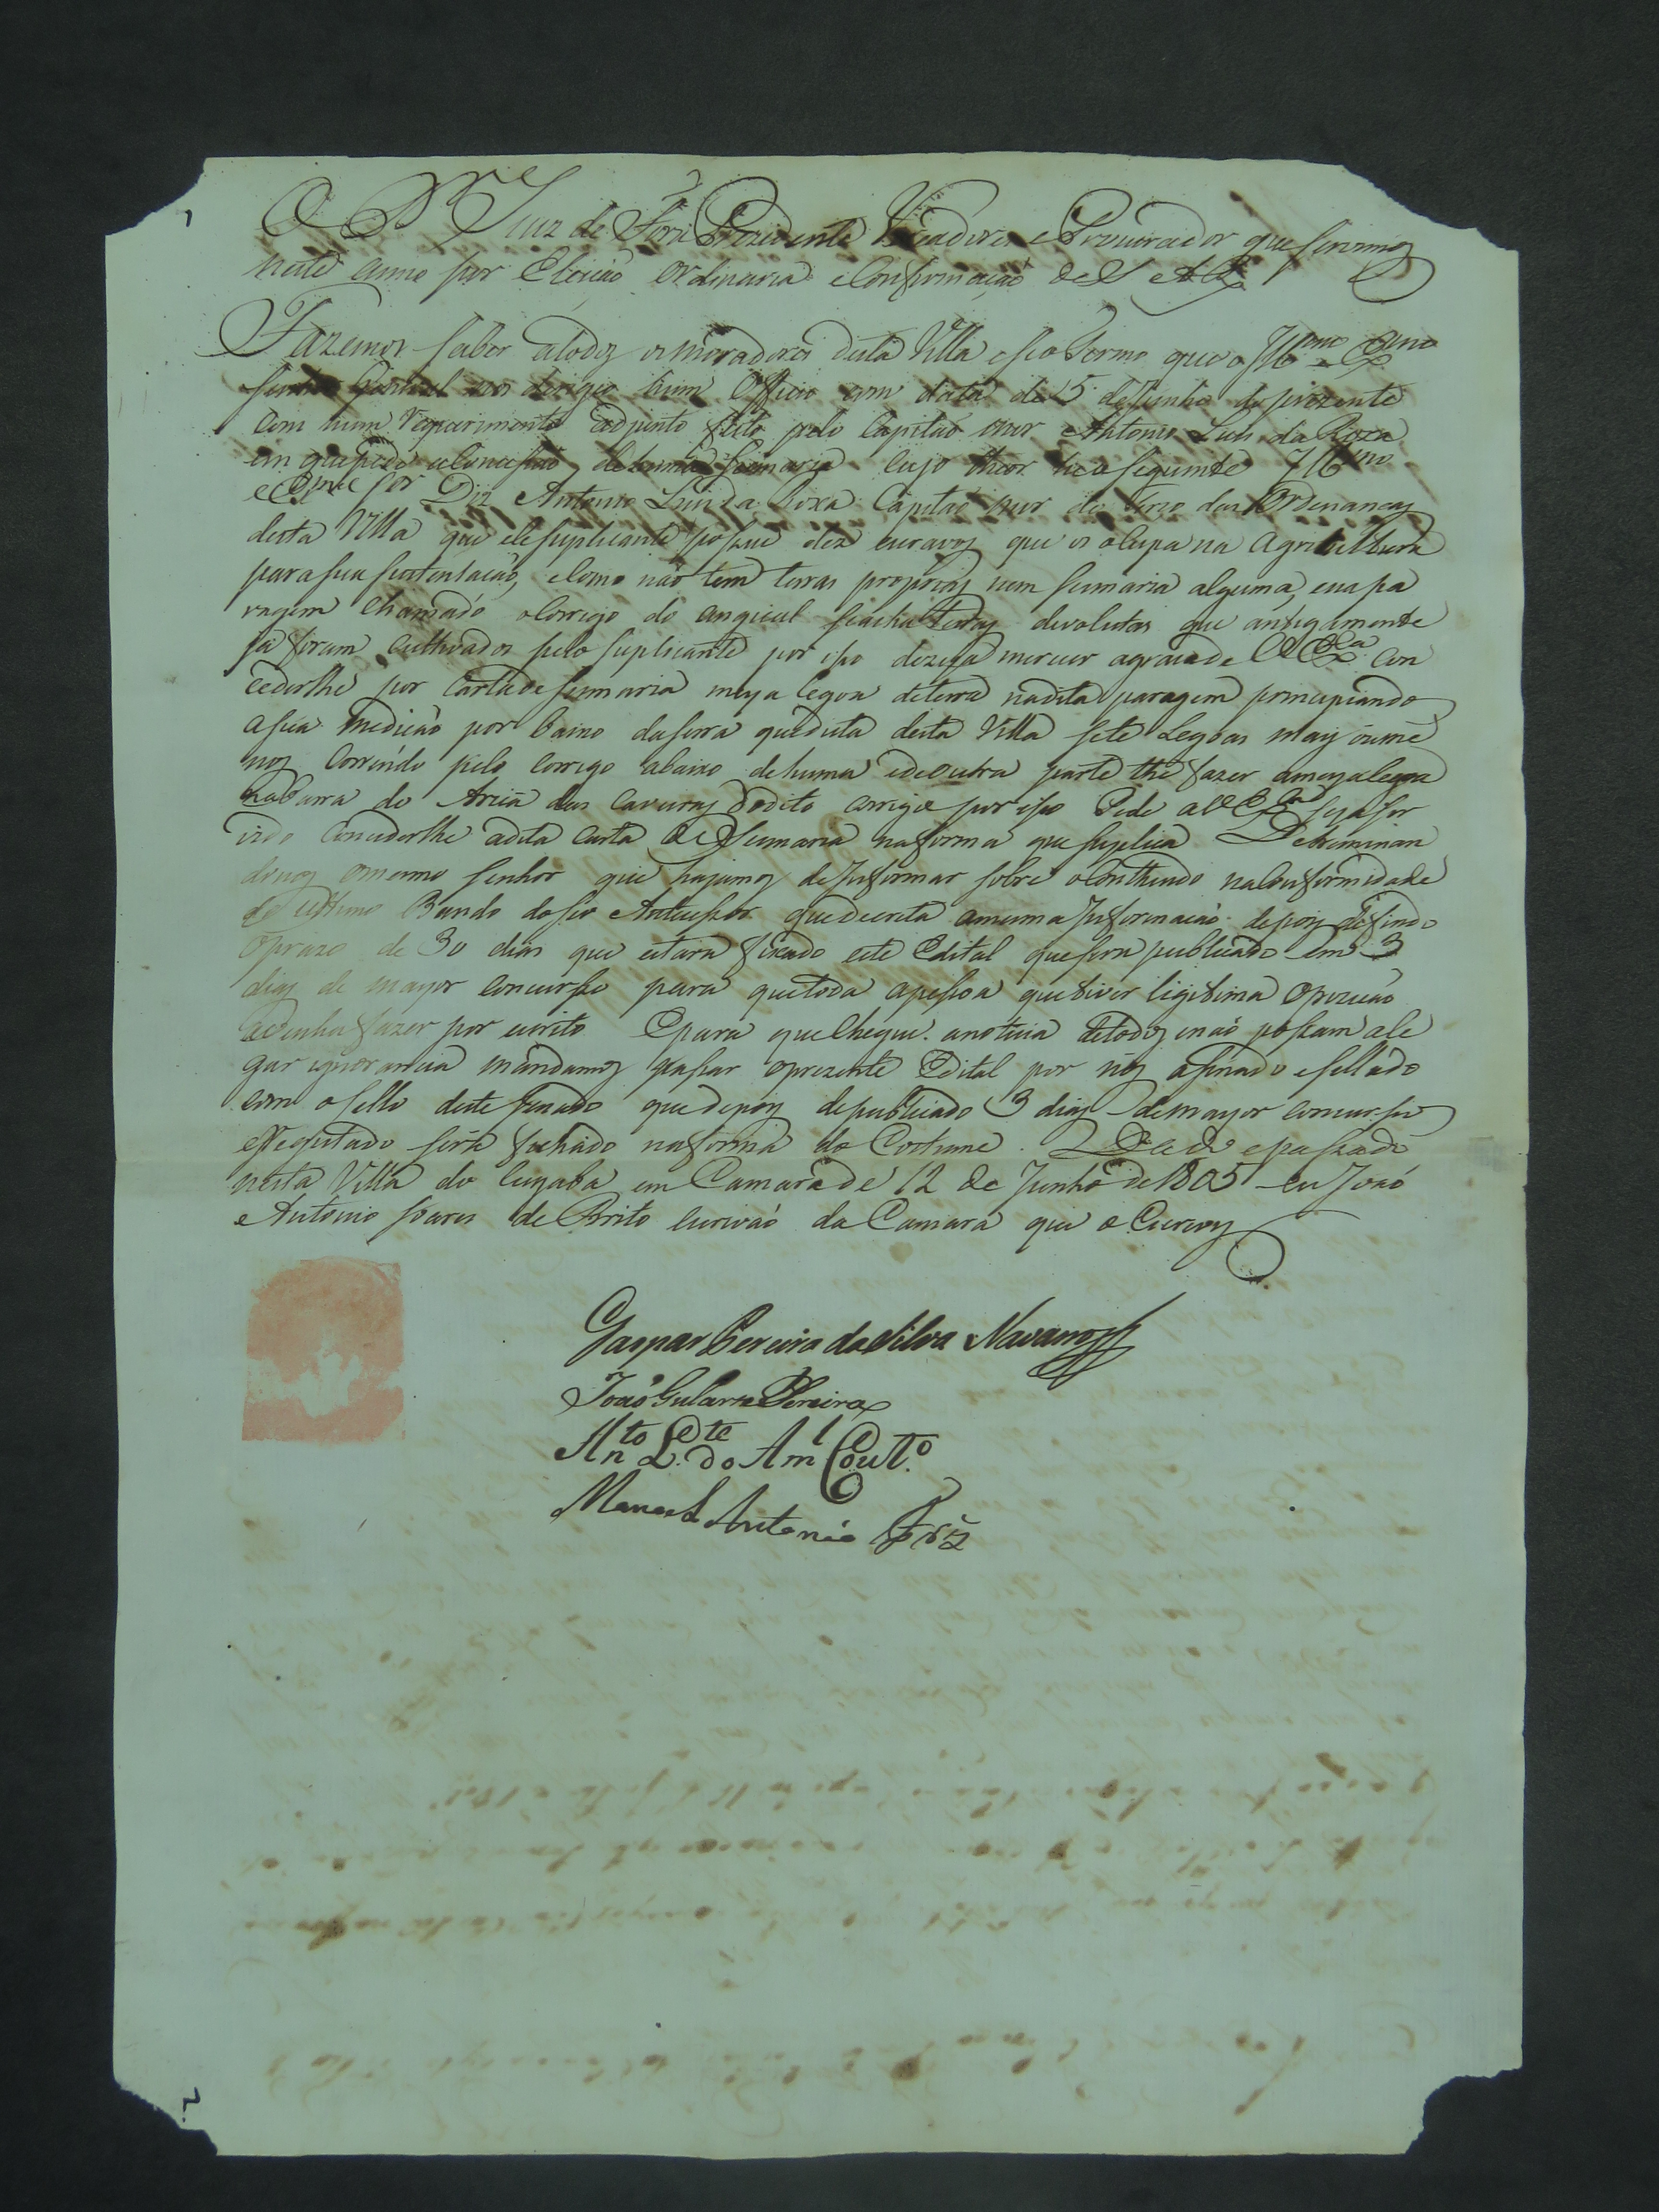 O D.r Juiz de Fora Prezidente Veadores e Procurador que servimos
neste anno por Eleicáo Ordinaria e Confirmaçaó de S A R
Fazemos saber atodos os moradores desta Villa e seo Termo que o Ill.mo e Ex.mo
senhor General nos dirigio hum Officio com data de 5 de Junho do prezente
com hum Requerimento adjunto feito pelo Capitaó mor Antonio Luis da Roxa
em que pede a Concessaó de huma Sesmaria cujo theor he o seguinte Ill.mo
e Ex.mo Sor Diz Antonio Luis da Roxa Capitaó mor do Terso das Ordenancas
desta Villa que elle suplicante possue dez escravos que os ocupa na Agricultura
para sua sustentacaó, e como naó tem terras proprias nem sismaria alguma, e na pa
ragem chamado o Corrego do angical se acha terras devolutas que antigamente
já foram Cultivados pelo suplicante por isso dezeja merecer a graca de V Ex.ca con
cederlhe por Carta de sismaria meya legoa de terra na dita paragem principiando
a sua mediçáo por baixo da serra que dista desta Villa sete Legoas mays ou me
nos Correndo pelo Corrego abaixo de huma e de outra parte the fazer a meya legoa
na barra do Aricá das lavouras do dito corrigo por isso Pede a V Ex.ca seja ser
vido Concederlhe a dita Carta de Sesmaria na forma que suplica Detriminan
donos o mesmo senhor que hajamos de Informar sobre o Contheudo na Conformidade
do ultimo Bando do seo Antessesor que decreta a mesma Informaçaó depois de findo
o prazo de 30 dias que estará fixado este Edital que será publicado em 3
dias de mayor concurso para que toda a pessoa que tiver ligitima Opozicaó
a venha fazer por escrito E para que chegue a noticia de todos e naó possam ale
gar ignorancia mandamos passar o prezente Edital por nós assinado e sellado
com o sello deste senado que depois de publicado 3 dias de mayor concurso
e Registado será fixado na forma do Costume. Dado e passado
nesta Villa do Cuyaba em Camara de 12 de Junho de 1805 eu Joaó
Antonio soares de Brito Escrivaó da Camara que o Escrevy
Gaspar Pereira da Silva Navarro
Joaó Gularte Pereira
An.to L. do Am.l Cout.o
Manoel Antonio Frz